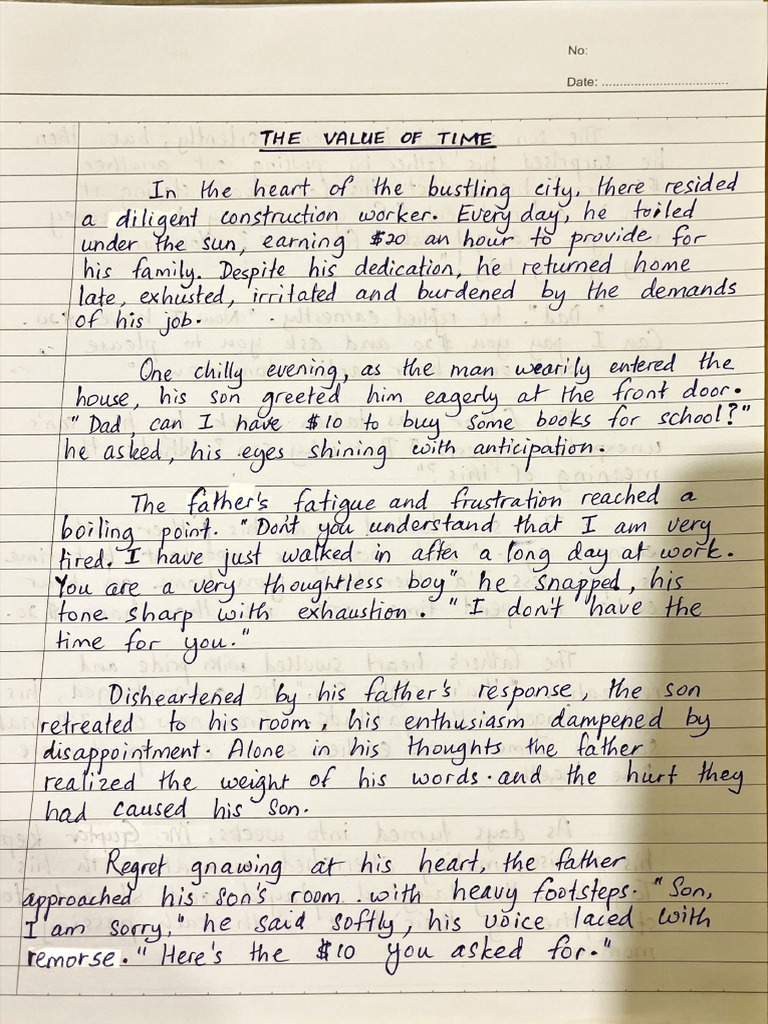 No:
Date: ..................................
THE VALUE OF TIME
In the heart of the bustling city, there resided
a diligent construction worker. Every day, he toiled
under the sun, earning $20 an hour to provide for
his family. Despite his dedication, he returned home
late, exhusted, irritated and burdened by the demands
of his job.
One chilly evening, as the man wearily entered the
house, his son greeted him eagerly at the front door.
"Dad, can I have $10 to buy some books for school?"
he asked, his eyes shining with anticipation.
The father's fatigue and frustration reached a
boiling point. "Don't you understand that I am very
tired. I have just walked in after a long day at work.
You are a very thoughtless boy" he snapped, his
tone sharp with exhaustion. "I don't have the
time for you."
Disheartened by his father's response, the son
retreated to his room, his enthusiasm dampened by
disappointment. Alone in his thoughts the father
realized the weight of his words. and the hurt they
had caused his son.
Regret gnawing at his heart, the father
approached his son's room with heavy footsteps. "Son,
I am sorry," he said softly, his voice laced with
remorse. "Here's the $10 you asked for."